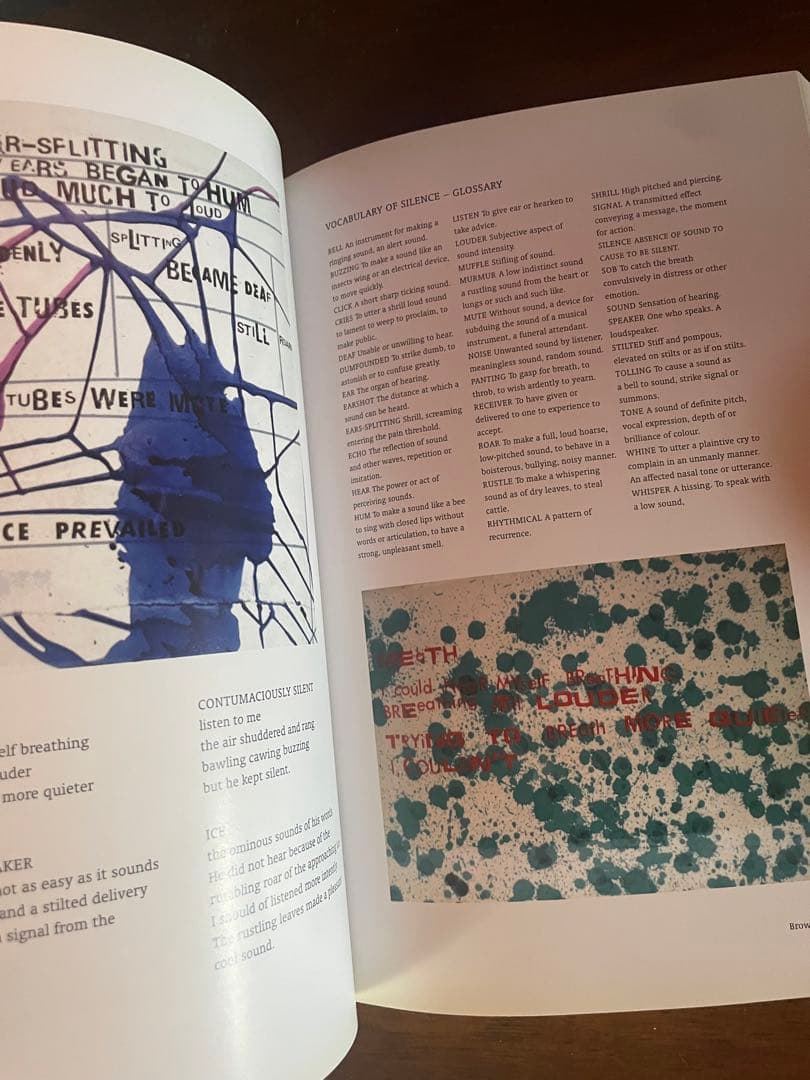 R-SPLITTING
EARS BEGAN TO HUM
MUCH TO LOUD
ENLY SPLITTING
BECAME DEAF
TUBES
STILL
TUBES WERE MUTE
CE PREVAILED
elf breathing
uder
more quieter
AKER
not as easy as it sounds
and a stilted delivery
signal from the
CONTUMACIOUSLY SILENT
listen to me
the air shuddered and rang
bawling cawing buzzing
but he kept silent.
ICE
the ominous sounds of his words
He did not hear because of the
rumbling roar of the approaching
I should of listened more intently
The rustling leaves made a pleasant
cool sound.
VOCABULARY OF SILENCE – GLOSSARY
BELL An instrument for making a
ringing sound, an alert sound.
BUZZING To make a sound like an
insects wing or an electrical device,
to move quickly.
CLICK A short sharp ticking sound.
CRIES To utter a shrill loud sound
to lament to weep to proclaim, to
make public.
DEAF Unable or unwilling to hear.
DUMFOUNDED To strike dumb, to
astonish or to confuse greatly.
EAR The organ of hearing.
EARSHOT The distance at which a
sound can be heard.
EARS-SPLITTING Shrill, screaming
entering the pain threshold.
ECHO The reflection of sound
and other waves, repetition or
imitation.
HEAR The power or act of
perceiving sounds.
HUM To make a sound like a bee
to sing with closed lips without
words or articulation, to have a
strong, unpleasant smell.
LISTEN To give ear or hearken to
take advice.
LOUDER Subjective aspect of
sound intensity.
MUFFLE Stifling of sound.
MURMUR A low indistinct sound
a rustling sound from the heart or
lungs or such and such like.
MUTE Without sound, a device for
subduing the sound of a musical
instrument, a funeral attendant.
NOISE Unwanted sound by listener,
meaningless sound, random sound.
PANTING To gasp for breath, to
throb, to wish ardently to yearn.
RECEIVER To have given or
delivered to one to experience to
accept.
ROAR To make a full, loud hoarse,
low-pitched sound, to behave in a
boisterous, bullying, noisy manner.
RUSTLE To make a whispering
sound as of dry leaves, to steal
cattle.
RHYTHMICAL A pattern of
recurrence.
SHRILL High pitched and piercing.
SIGNAL A transmitted effect
conveying a message, the moment
for action.
SILENCE ABSENCE OF SOUND TO
CAUSE TO BE SILENT.
SOB To catch the breath
convulsively in distress or other
emotion.
SOUND Sensation of hearing.
SPEAKER One who speaks. A
loudspeaker.
STILTED Stiff and pompous,
elevated on stilts or as if on stilts.
TOLLING To cause a sound as
a bell to sound, strike signal or
summons.
TONE A sound of definite pitch,
vocal expression, depth of or
brilliance of colour.
WHINE To utter a plaintive cry to
complain in an unmanly manner.
An affected nasal tone or utterance.
WHISPER A hissing. To speak with
a low sound,
I could HEAR MYSELF BReaTHING
BREeaTHING LOUDER
TRYING TO BREatH MORE
I COULDN'T
Brow